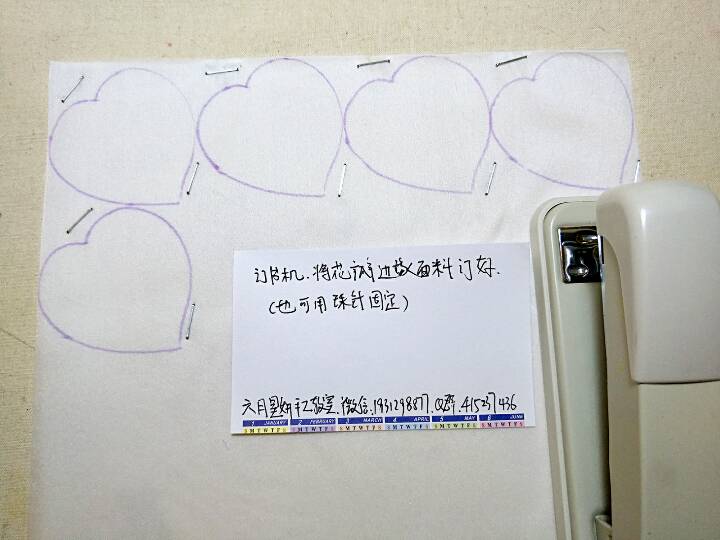 订书机.将花瓣边缘面料订好.
(也可用珠针固定)
六月星妍手工教室.微信.1931298877.QQ群.415237436
1 JANUARY 2 FEBRUARY 3 MARCH 4 APRIL 5 MAY 6 JUNE
S M T W T F S S M T W T F S S M T W T F S S M T W T F S S M T W T F S S M T W T F S